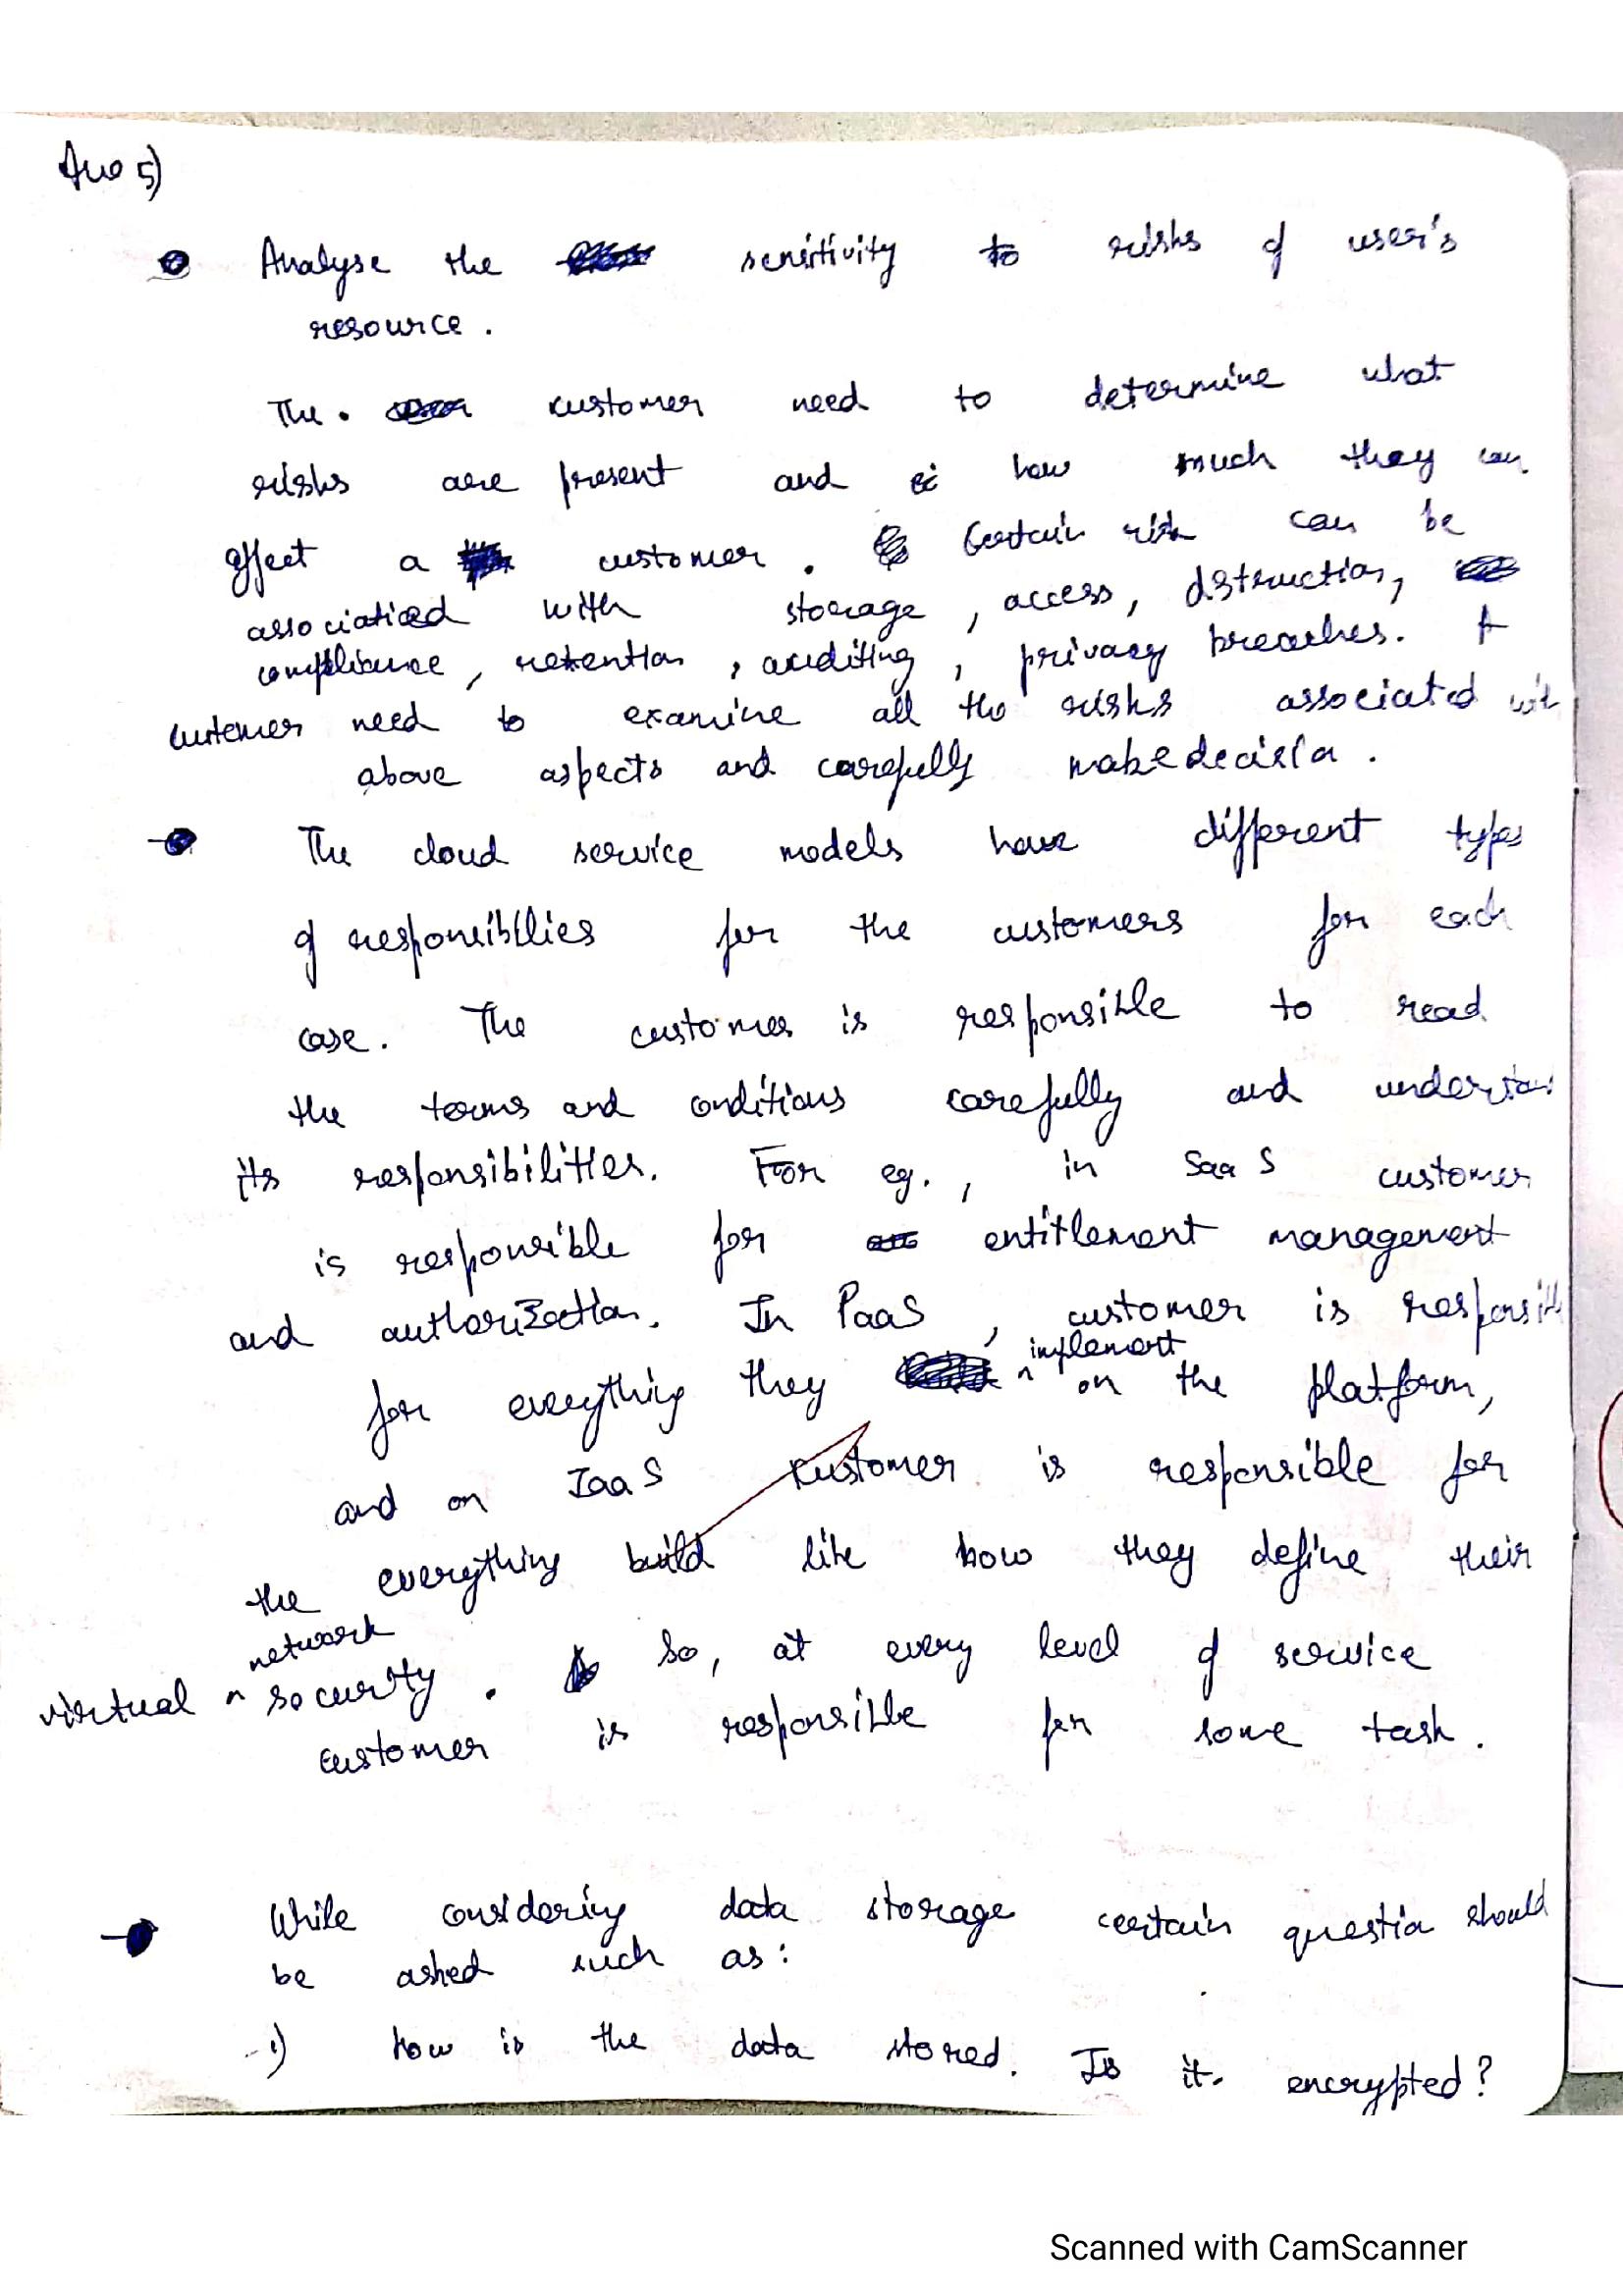 Ans 5)
Analyse the sensitivity to risks of user's
resource.
The customer need to determine what
risks are present and how much they can
effect a customer. Certain risk can be
associaticed with storage, access, distruction,
compliance, retention, auditing, privacy breaches. A
customer need to examine all the risks associated with
above aspects and carefully make decision.
The cloud service models have different types
of responsibllies for the customers for each
case. The customer is responsible to read
the terms and conditions carefully and understan
its responsibilities. For eg., in SaaS customer
is responsible for entitlement management
and authorization. In PaaS, customer is responsib
for everything they implement on the platform,
and on IaaS customer is responsible for
the everything build like how they define their
virtual network security. So, at every level of service
customer is responsible for some task.
While considering data storage certain question should
be asked such as:
1) How is the data stored. Is it encrypted?
Scanned with CamScanner